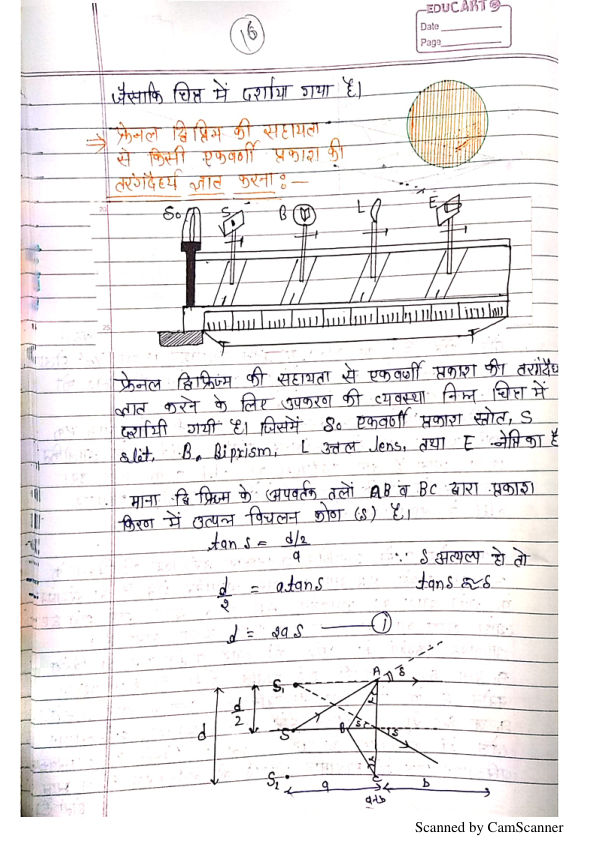 EDUCART
Date
Page
16
जैसाकि चित्र में दर्शाया गया है।
→ फ्रेनल द्वि प्रिज्म की सहायता
से किसी एकवर्णी प्रकाश की
तरंगदैर्ध्य ज्ञात करना :—
S₀ S B L E
फ्रेनल द्विप्रिज्म की सहायता से एकवर्णी प्रकाश की तरंगदैर्ध
ज्ञात करने के लिए उपकरण की व्यवस्था निम्न चित्र में
दर्शायी गयी है। जिसमें S₀ एकवर्णी प्रकाश स्रोत, S
slit, B, Biprism, L उत्तल lens, तथा E नेत्रिका है
माना द्वि प्रिज्म के अपवर्तक तलों AB व BC द्वारा प्रकाश
किरण में उत्पन्न विचलन कोण (δ) है।
tan δ = d/2 / a
∵ δ अत्यल्प हो तो
d/2 = a tan δ
tan δ ≈ δ
d = 2aδ —— ①
S₁ A δ
d/2
d S B δ δ
S₂ C
a b
a+b
Scanned by CamScanner